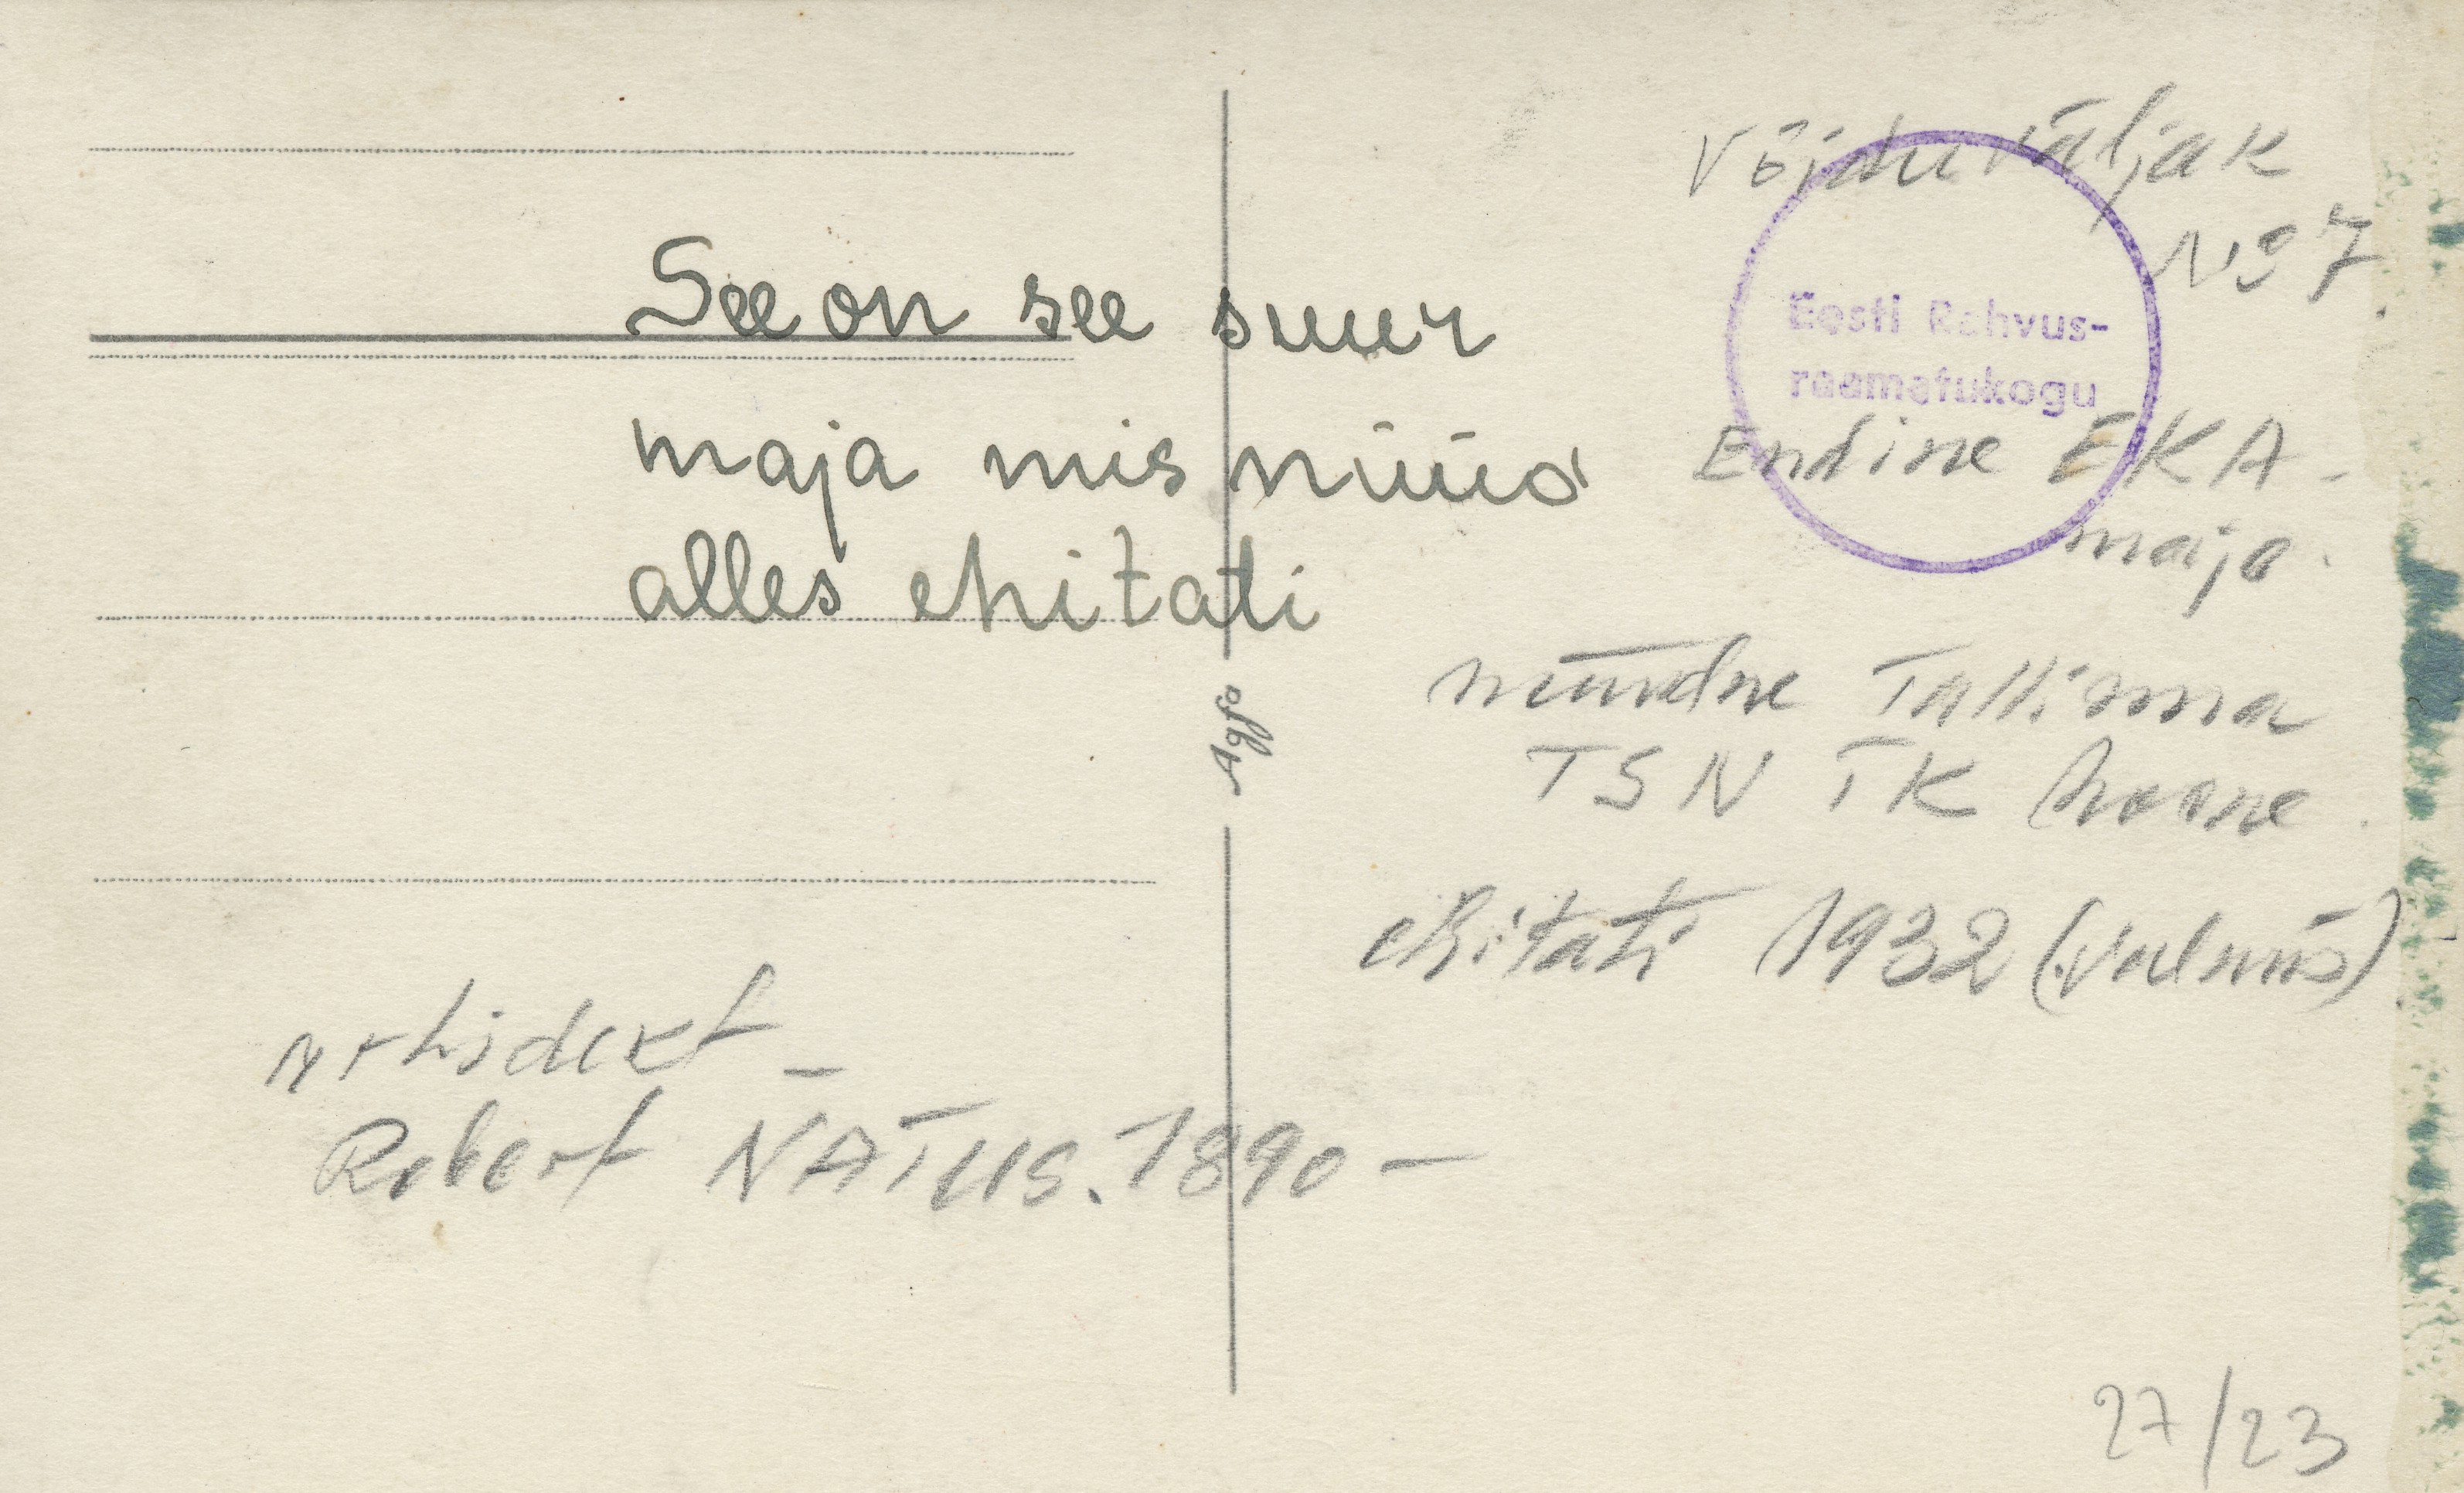 See on see suur
maja mis nüüd
alles ehitati
Võiduväljak
No 7
Eesti Rahvus-
raamatukogu
Endine EKA-
maja.
nüüdne Tallinna
TSN TK hoone
ehitati 1932 (valmis)
arhidekt –
Robert NATUS. 1890 –
27/23